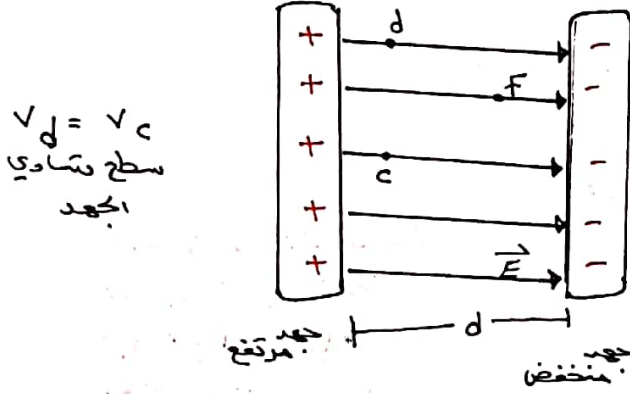 + d -
+ F -
V_d = V_c
سطح متساوي
الجهد
+ c -
+ -
+ E⃗ -
جهد مرتفع
d
جهد منخفض